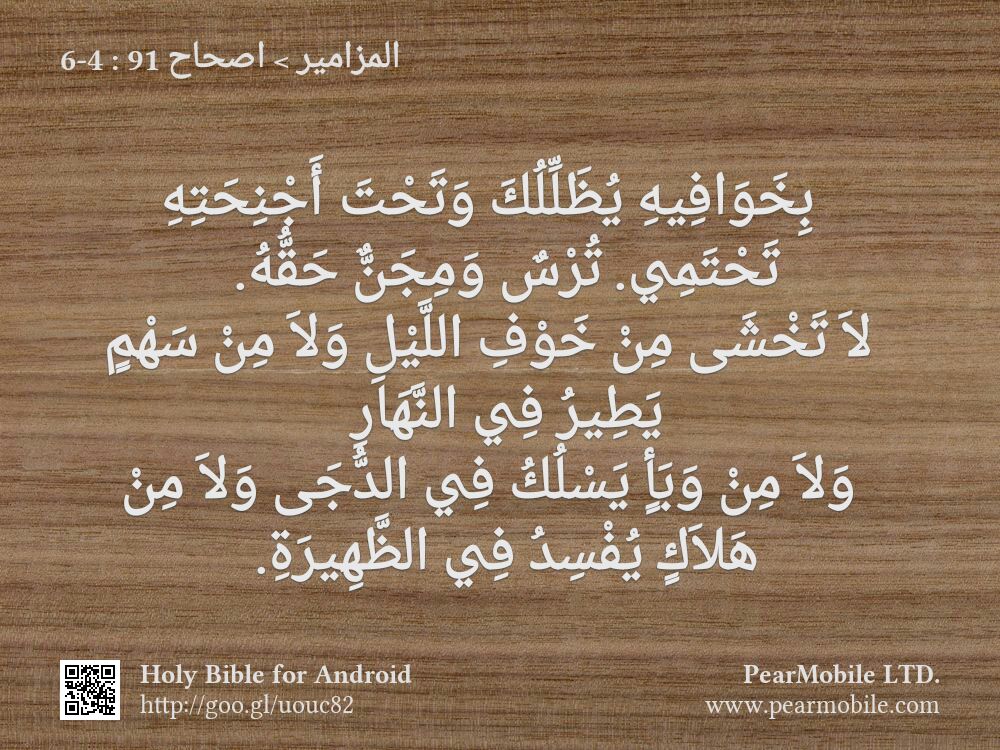 المزامير > اصحاح 91 : 4-6
بِخَوَافِيهِ يُظَلِّلُكَ وَتَحْتَ أَجْنِحَتِهِ
تَحْتَمِي. تُرْسٌ وَمِجَنٌّ حَقُّهُ.
لاَ تَخْشَى مِنْ خَوْفِ اللَّيْلِ وَلاَ مِنْ سَهْمٍ
يَطِيرُ فِي النَّهَارِ
وَلاَ مِنْ وَبَأٍ يَسْلُكُ فِي الدُّجَى وَلاَ مِنْ
هَلاَكٍ يُفْسِدُ فِي الظَّهِيرَةِ.
Holy Bible for Android
http://goo.gl/uouc82
PearMobile LTD.
www.pearmobile.com